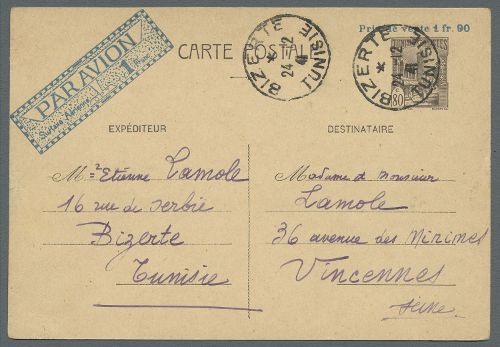 Prix de vente 1 fr. 90
CARTE POSTALE
PAR AVION
Surtaxe Aérienne 1
BIZERTE
* 24 12 41
TUNISIE
BIZERTE
* 24 12 41
TUNISIE
80
EXPÉDITEUR
DESTINATAIRE
Mr Etienne Lamole
16 rue de Serbie
Bizerte
Tunisie
Madame & Monsieur
Lamole
36 avenue des Minimes
Vincennes
Seine